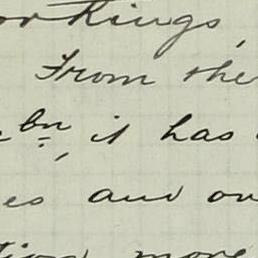 orkings,
From the
bn, it has
es and ou
tion more